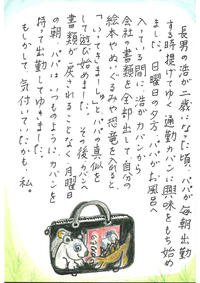 長男の浩が二歳になった頃、パパが毎朝出勤
する時提げてゆく通勤カバンに興味をもち始め
ました。日曜日の夕方、パパがお風呂へ
入っている間に浩がカバンから
会社の書類を全部出して自分の
絵本やぬいぐるみや恐竜を入れと
「いってきまーす」と、パパの真似を
して遊び始めました。その後カバンへ
書類が戻られることなく、月曜日
の朝、パパはいつものようにカバンを
持って出勤してゆきました。
もしかして気付いていたかも、私。